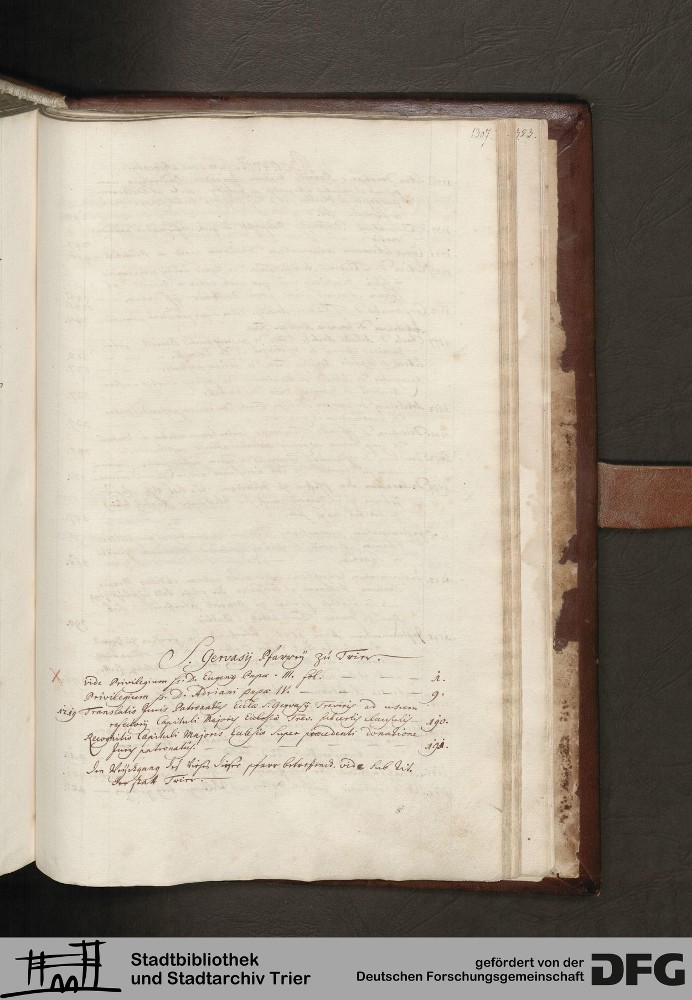 1307. 483.
S. Gervasij Pfarreÿ zu Trier.
vide Privilegium s. D. Eugenij Papæ III. fol. 2.
Privilegium s. D. Adriani papæ IV. 9.
1219 Translatio Juris Patronatus Ecclæ S. Gervasij Treviris ad usum
refectorij Capituli Majoris Ecclesiæ Trev. sub certis clausulis 190.
Recognitio Capituli Majoris Ecclesiæ super præcedenti donatione
Juris patronatus. 191.
Den dieser pfarr betreffend. vide sub tit.
der statt Trier.
Stadtbibliothek
und Stadtarchiv Trier
gefördert von der
Deutschen Forschungsgemeinschaft
DFG